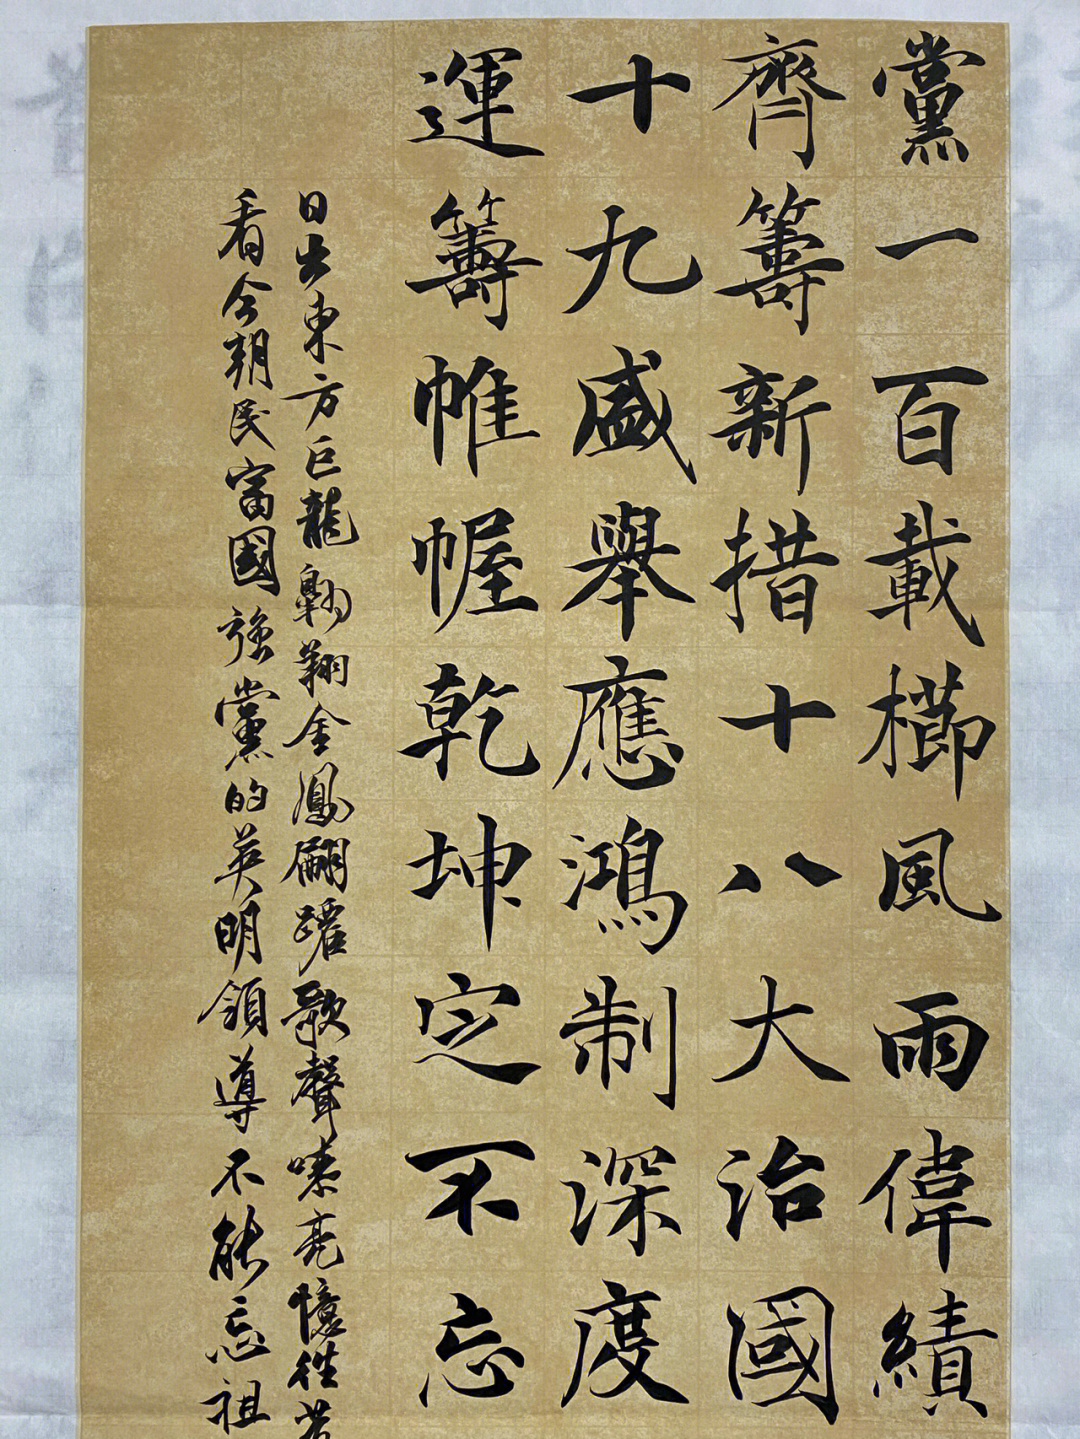 黨一百載櫛風雨偉績
齊籌新措十八大治國
十九盛舉應鴻制深度
運籌帷幄乾坤定不忘
日出東方巨龍翱翔金鳳翩躚歌聲嘹亮憶往昔
看今朝民富國強黨的英明領導不能忘祖